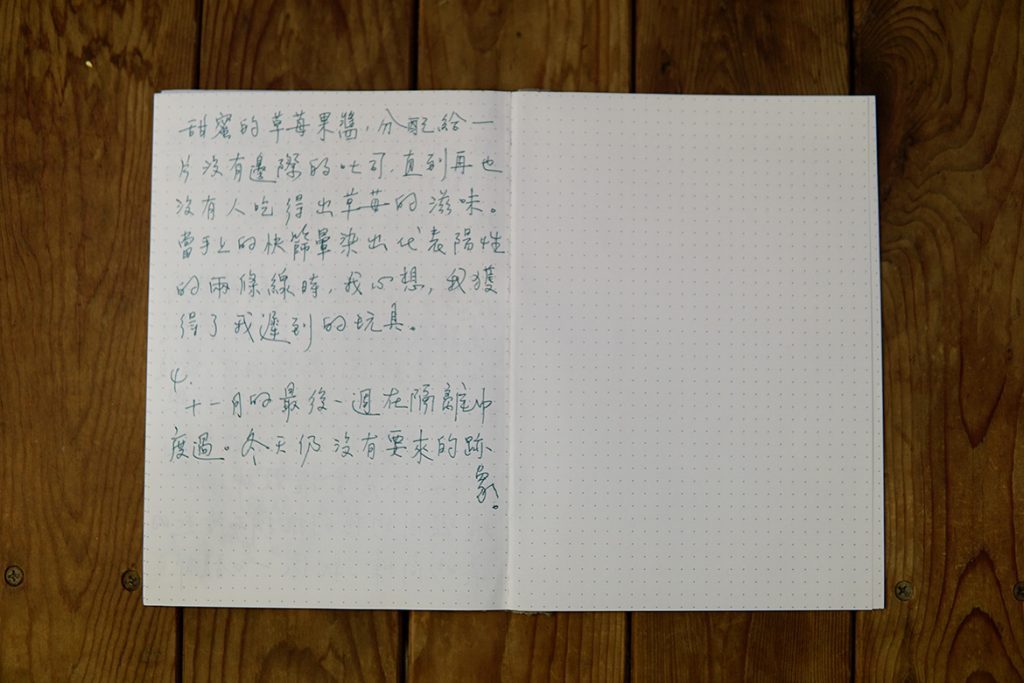 甜蜜的草莓果醬，分配給一
片沒有邊際的吐司，直到再也
沒有人吃得出草莓的滋味。
當手上的快篩暈染出代表陽性
的兩條線時，我心想，我獲
得了我遲到的玩具。
4.
十一月的最後一週在隔離中
度過。冬天仍沒有要來的跡
象。